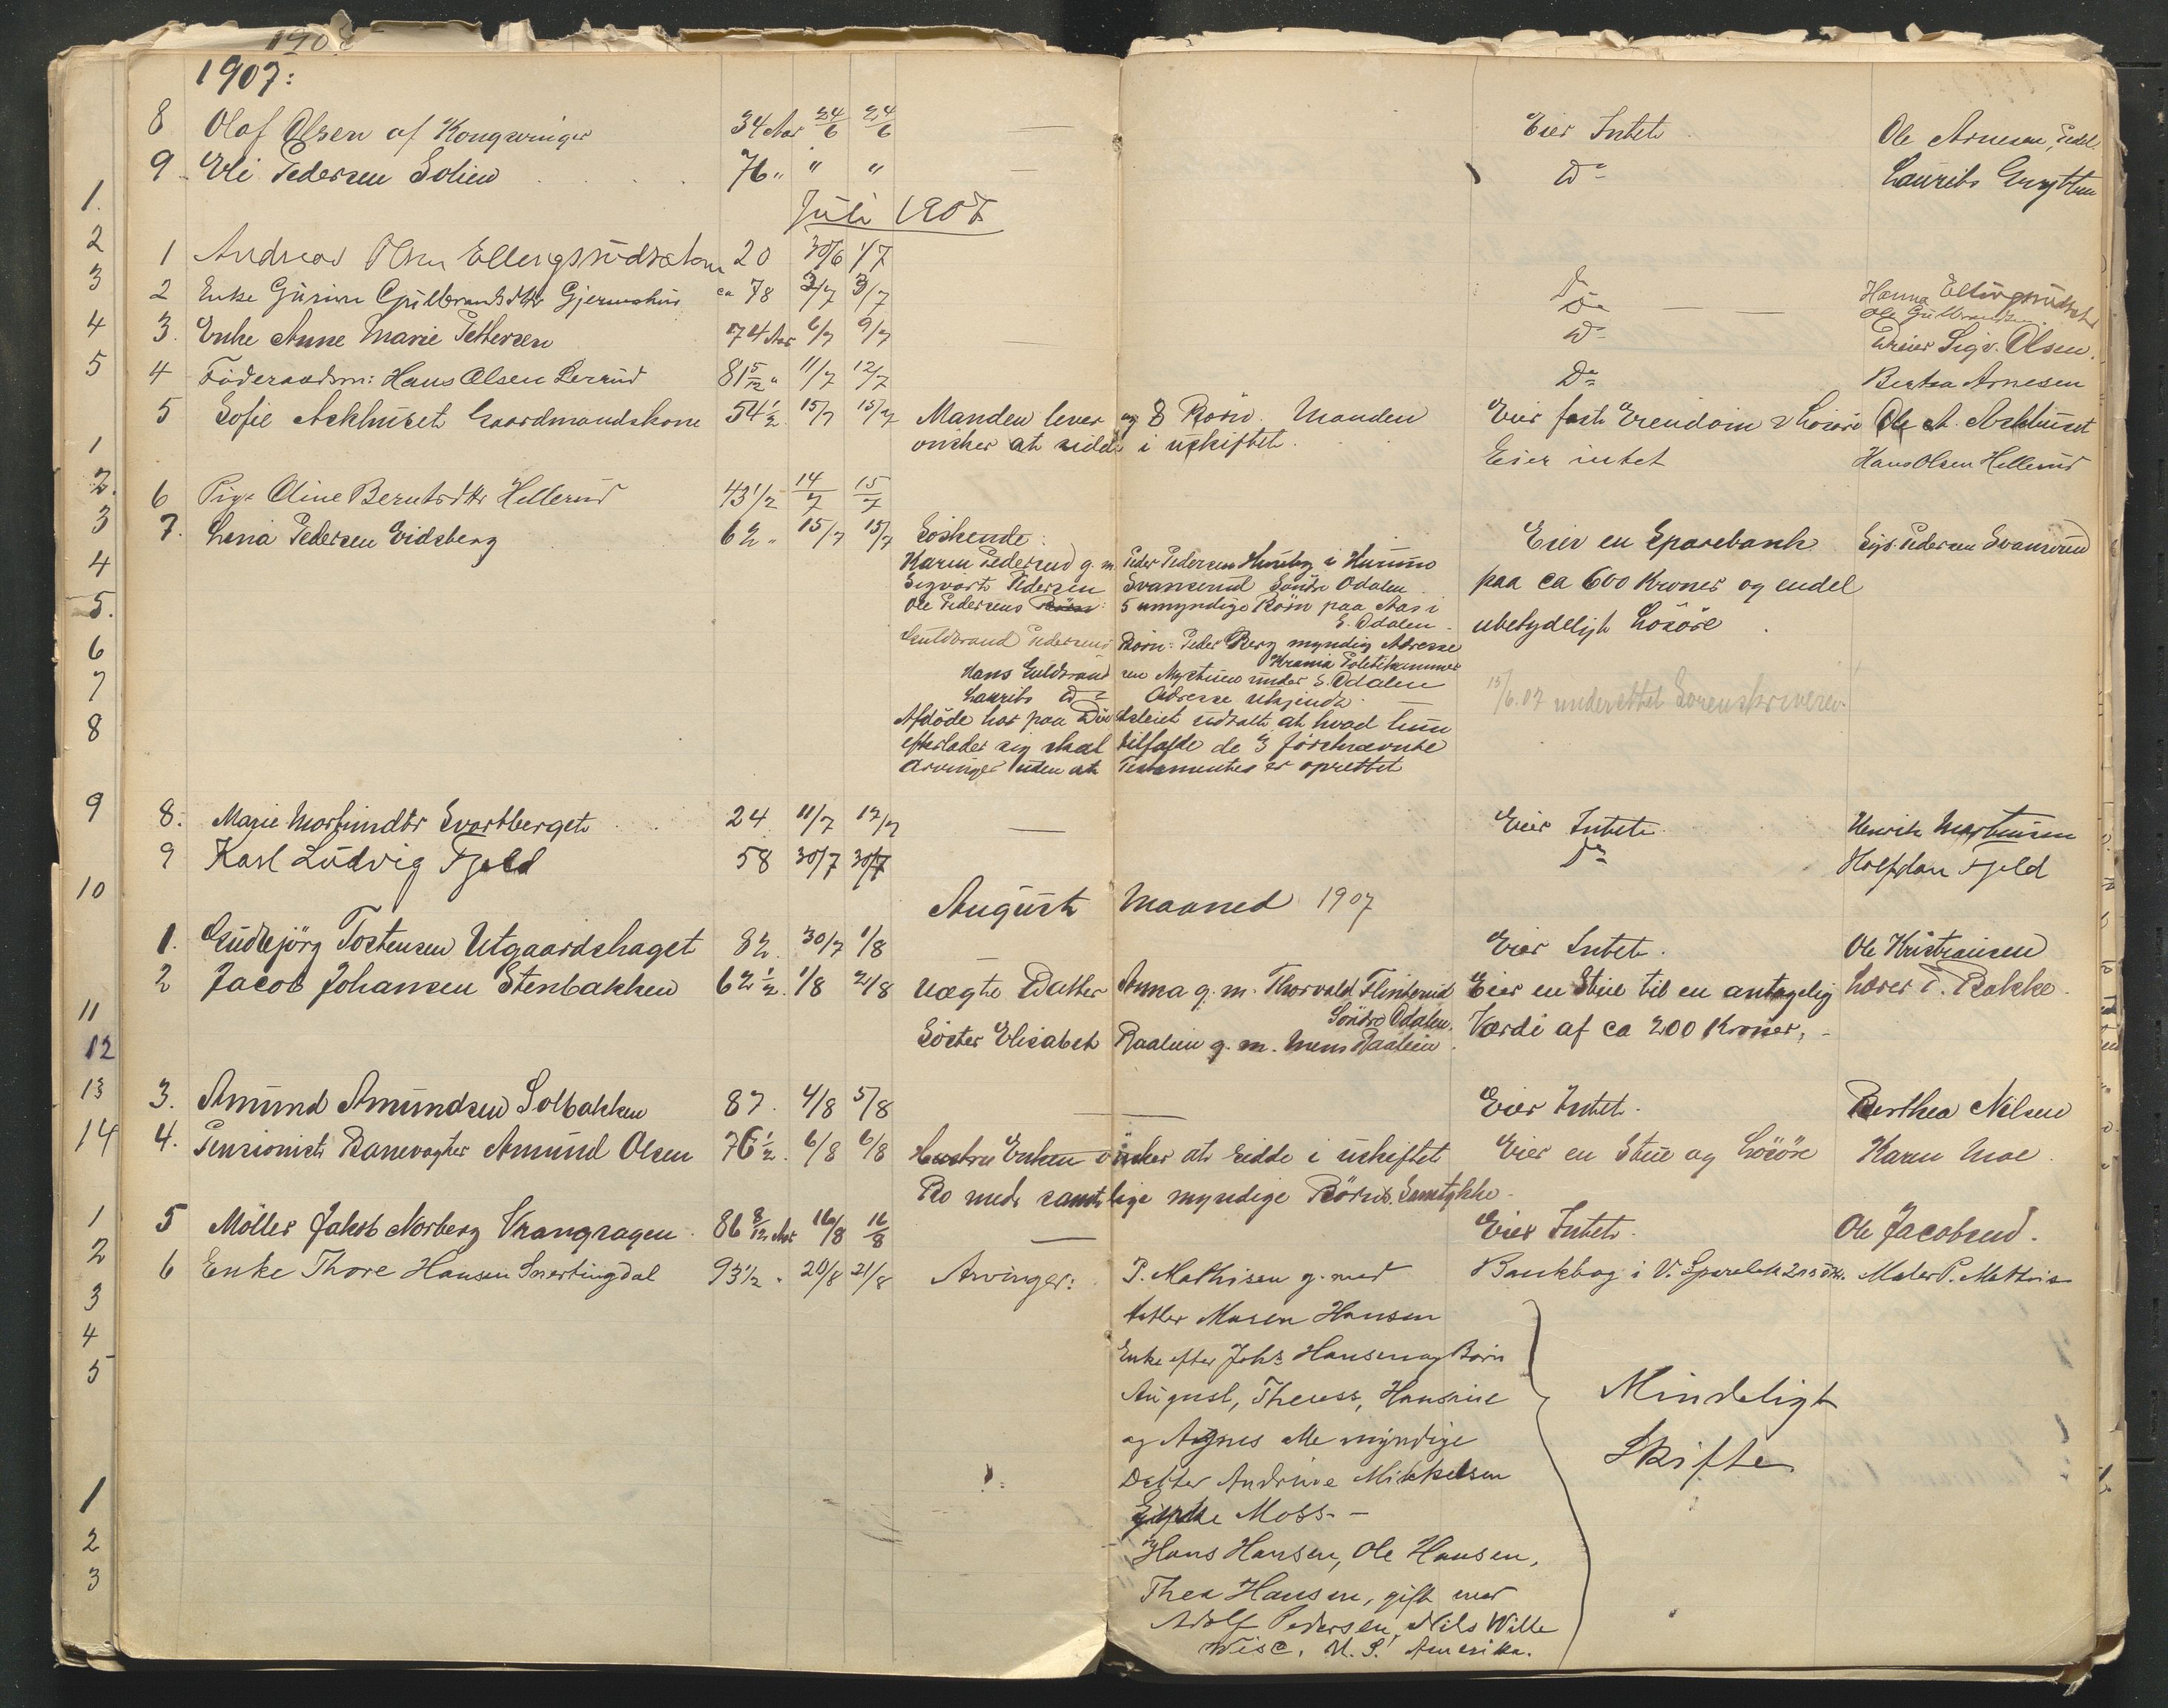 1908
1907:
8 Olaf Olsen af Kongsvinger 34 Aar 24/6 24/6 — Eier Intet Ole Arnesen
9 Eli Pedersen Solien 76 " " " — Do Laurits
Juli 1907
1 Andreas Olsen Ellingsrudsæter 20 30/6 1/7 Do Hanna Ellingsrudsæter
2 Enke Gulbrandsdtr ca 78 2/7 3/7 Do — — Ole Gulbrandsen
3. Enke Anne Marie Pettersen 74 Aar 6/7 9/7 — Do Sigv. Olsen.
4 Föderaadsm: Hans Olsen Lerrud 81 5/12 " 11/7 12/7 Do Bertea Arnesen
5 Sofie Askhuset Gaardmandskone 54 1/2 15/7 15/7 Manden lever og 8 Börn. Manden Eier fast Eiendom & Lösöre Ole A. Askhuset
önsker at sidde i uskiftet.
6 Pige Oline Berntsdtr Hellerud 43 1/2 14/7 15/7 Eier intet Hans Olsen Hellerud
7. Lina Pedersen Eidsberg 62 " 15/7 15/7 Söskende: Eier en Sparebank Sigv. Pedersen Svanerud
Karen Pedersen g. m. Peder Pedersen Huseby i
Sigvart Pedersen Svanerud Söndre Odalen paa ca 600 Kroner og endel
Ole Pedersens Börn: 5 umyndige Börn paa Aas i
S. Odalen. ubetydeligt Lösöre
Guldbrand Pedersens Börn: Peder Berg myndig Adresse
Krania Politikammer
Hans Guldbrandsen Mystuen under S. Odalen
Laurits Do Adresse ukjendt. 15/6.07 underettet Sorenskriveren
Afdöde har paa Dödsleiet udtalt at hvad hun
efterlader sig skal tilfalde de 3 förstnævnte
Arvinger uden at Testamentes er oprettet
8. Marie Martinsdtr Svartberget 24 11/7 12/7 — Eier Intet Henrik Martinsen
9 Karl Ludvig Fjeld 58 30/7 30/7 Do Halfdan Fjeld
August Maaned 1907
1. Gudbjörg Tostensen Utgaardshaget 82 30/7 1/8 — Eier Intet. Ole Kristiansen
2 Jacob Johansen Stenbakken 62 1/2. 1/8 2/8 Uægte Datter Anna g. m. Thorvald Flinterud Eier en Stue til en antagelig Lærer P. Bakke.
Söndre Odalen.
Söster Elisabeth Raalien g. m. Mons Raalien Værdi af ca 200 Kroner,
3. Amund Amundsen Solbakken 87. 4/8 5/8 — Eier Intet. Berthea Nilsen
4. Pensionist Banevogter Amund Olsen 76 1/2. 6/8 6/8 Hustru Enken önsker at sidde i uskiftet Eier en Stue og Lösöre Karen Moe
Bo med samtlige myndige Börns Samtykke
5 Möller Jakob Norberg Vrangsagen 86 8/12 Aar 16/8 16/8 — Eier Intet. Ole Jacobsen.
6 Enke Thore Hansen Snertingdal 93 1/2 " 20/8 21/8 Arvinger: P. Mathisen g. med Bankbog i V. Sparebk Maler P. Mathis
datter Maren Hansen
Enke efter Johs Hansen og Börn
August, Theress, Hansine
og Agnes alle myndige
Datter Andrine Mikkelsen
Moss. —
Hans Hansen, Ole Hansen,
Thea Hansen, gift med
Adolf Pedersen, Nils Wille
Wisc. U. S. Amerika.
Mindeligt
Skifte
1.
2
3
4
5
1
2.
3
4
5.
6
7
8
9
10
11
12
13
14
1
2
3
4
5
1
2
3